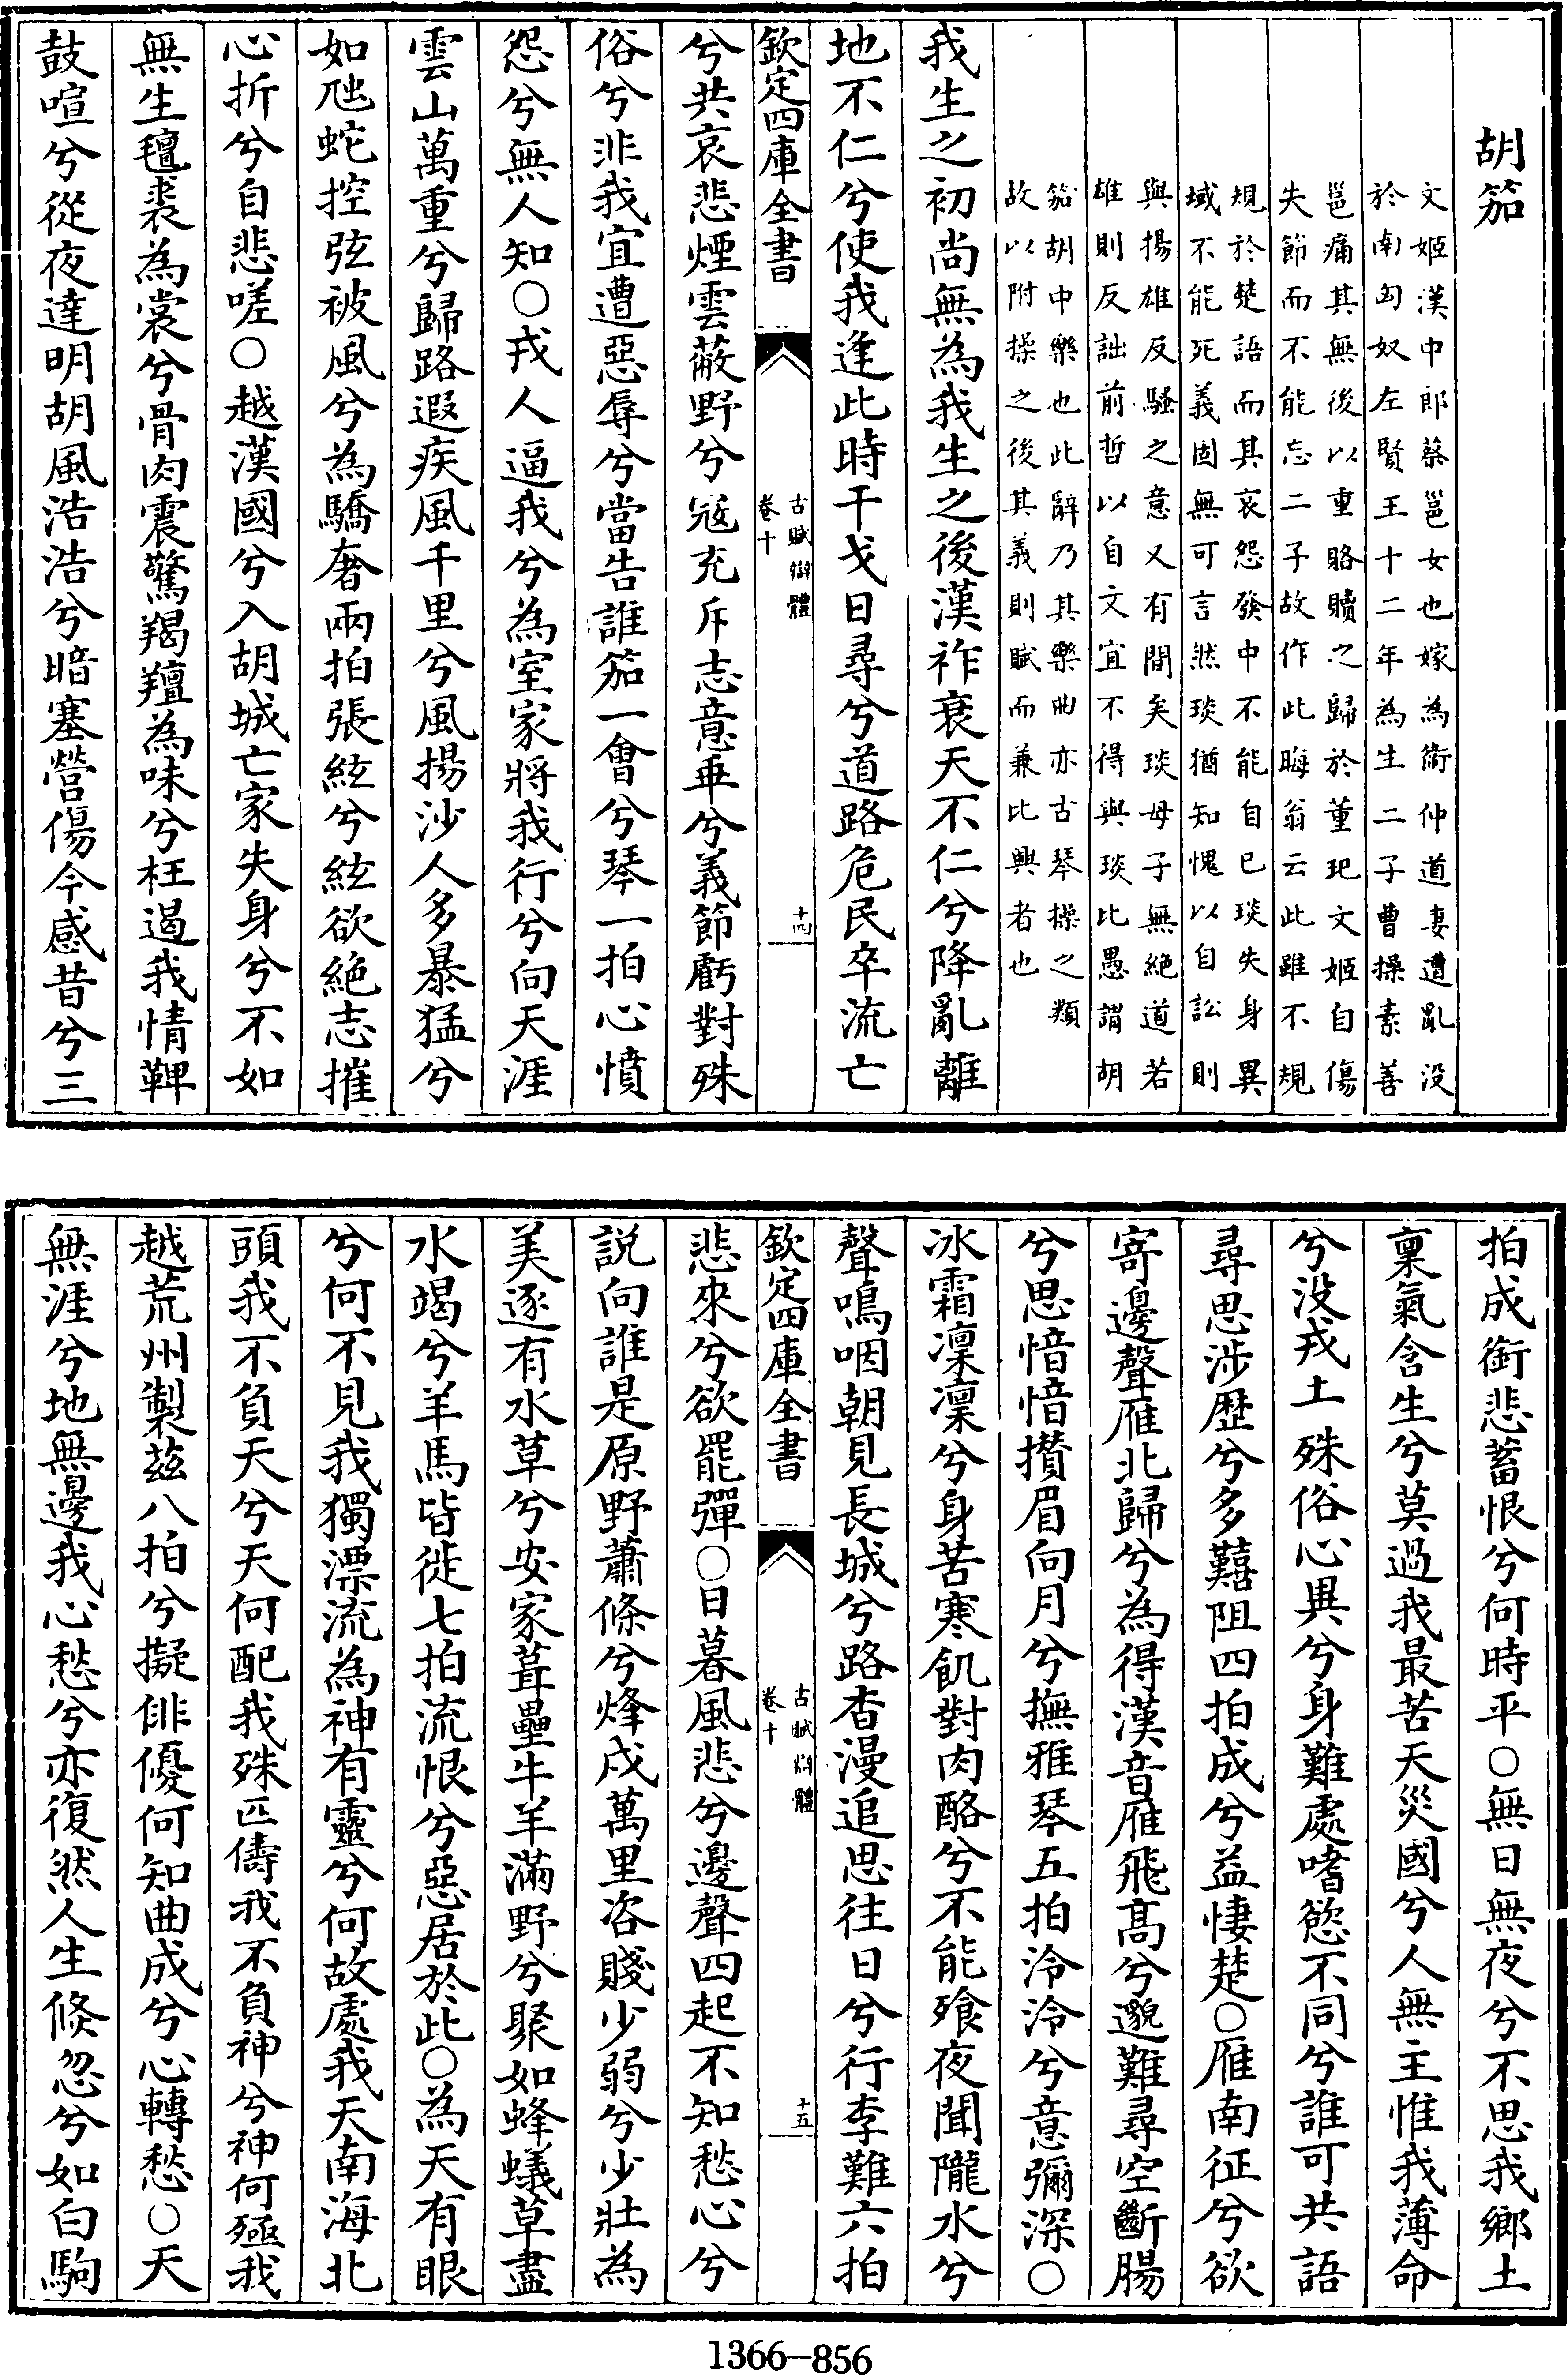 胡笳
文姬漢中郎蔡邕女也嫁為衛仲道妻遭亂没
於南匈奴左賢王十二年為生二子曹操素善
邕痛其無後以重賂贖之歸於董玘文姬自傷
失節而不能忘二子故作此晦翁云此雖不規
規於楚語而其哀怨發中不能自已琰失身異
域不能死義固無可言然琰猶知愧以自訟則
與揚雄反騷之意又有間矣琰母子無絶道若
雄則反詘前哲以自文宜不得與琰比愚謂胡
笳胡中樂也此辭乃其樂曲亦古琴操之類
故以附操之後其義則賦而兼比興者也
我生之初尚無為我生之後漢祚衰天不仁兮降亂離
地不仁兮使我逢此時干戈日尋兮道路危民卒流亡
欽定四庫全書
古賦辯體
卷十
十四
兮共哀悲煙雲蔽野兮寇充斥志意乖兮義節虧對殊
俗兮非我宜遭惡辱兮當告誰笳一會兮琴一拍心憤
怨兮無人知○戎人逼我兮為室家將我行兮向天涯
雲山萬重兮歸路遐疾風千里兮風揚沙人多暴猛兮
如虺蛇控弦被風兮為驕奢兩拍張絃兮絃欲絶志摧
心折兮自悲嗟○越漢國兮入胡城亡家失身兮不如
無生氊裘為裳兮骨肉震驚羯羶為味兮枉遏我情鞞
鼓喧兮從夜達明胡風浩浩兮暗塞營傷今感昔兮三
拍成銜悲蓄恨兮何時平○無日無夜兮不思我鄉土
稟氣含生兮莫過我最苦天災國兮人無主惟我薄命
兮没戎土殊俗心異兮身難處嗜慾不同兮誰可共語
尋思涉歷兮多囏阻四拍成兮益悽楚○雁南征兮欲
寄邊聲雁北歸兮為得漢音雁飛髙兮邈難尋空斷腸
兮思愔愔攢眉向月兮撫雅琴五拍泠泠兮意彌深○
冰霜凜凜兮身苦寒飢對肉酪兮不能飱夜聞隴水兮
聲鳴咽朝見長城兮路杳漫追思往日兮行李難六拍
欽定四庫全書
古賦辯體
卷十
十五
悲來兮欲罷彈○日暮風悲兮邊聲四起不知愁心兮
説向誰是原野蕭條兮烽戍萬里咨賤少弱兮少壯為
美逐有水草兮安家葺壘牛羊滿野兮聚如蜂蟻草盡
水竭兮羊馬皆徙七拍流恨兮惡居於此○為天有眼
兮何不見我獨漂流為神有靈兮何故處我天南海北
頭我不負天兮天何配我殊匹儔我不負神兮神何殛我
越荒州製兹八拍兮擬俳優何知曲成兮心轉愁○天
無涯兮地無邊我心愁兮亦復然人生倐忽兮如白駒
1366-856